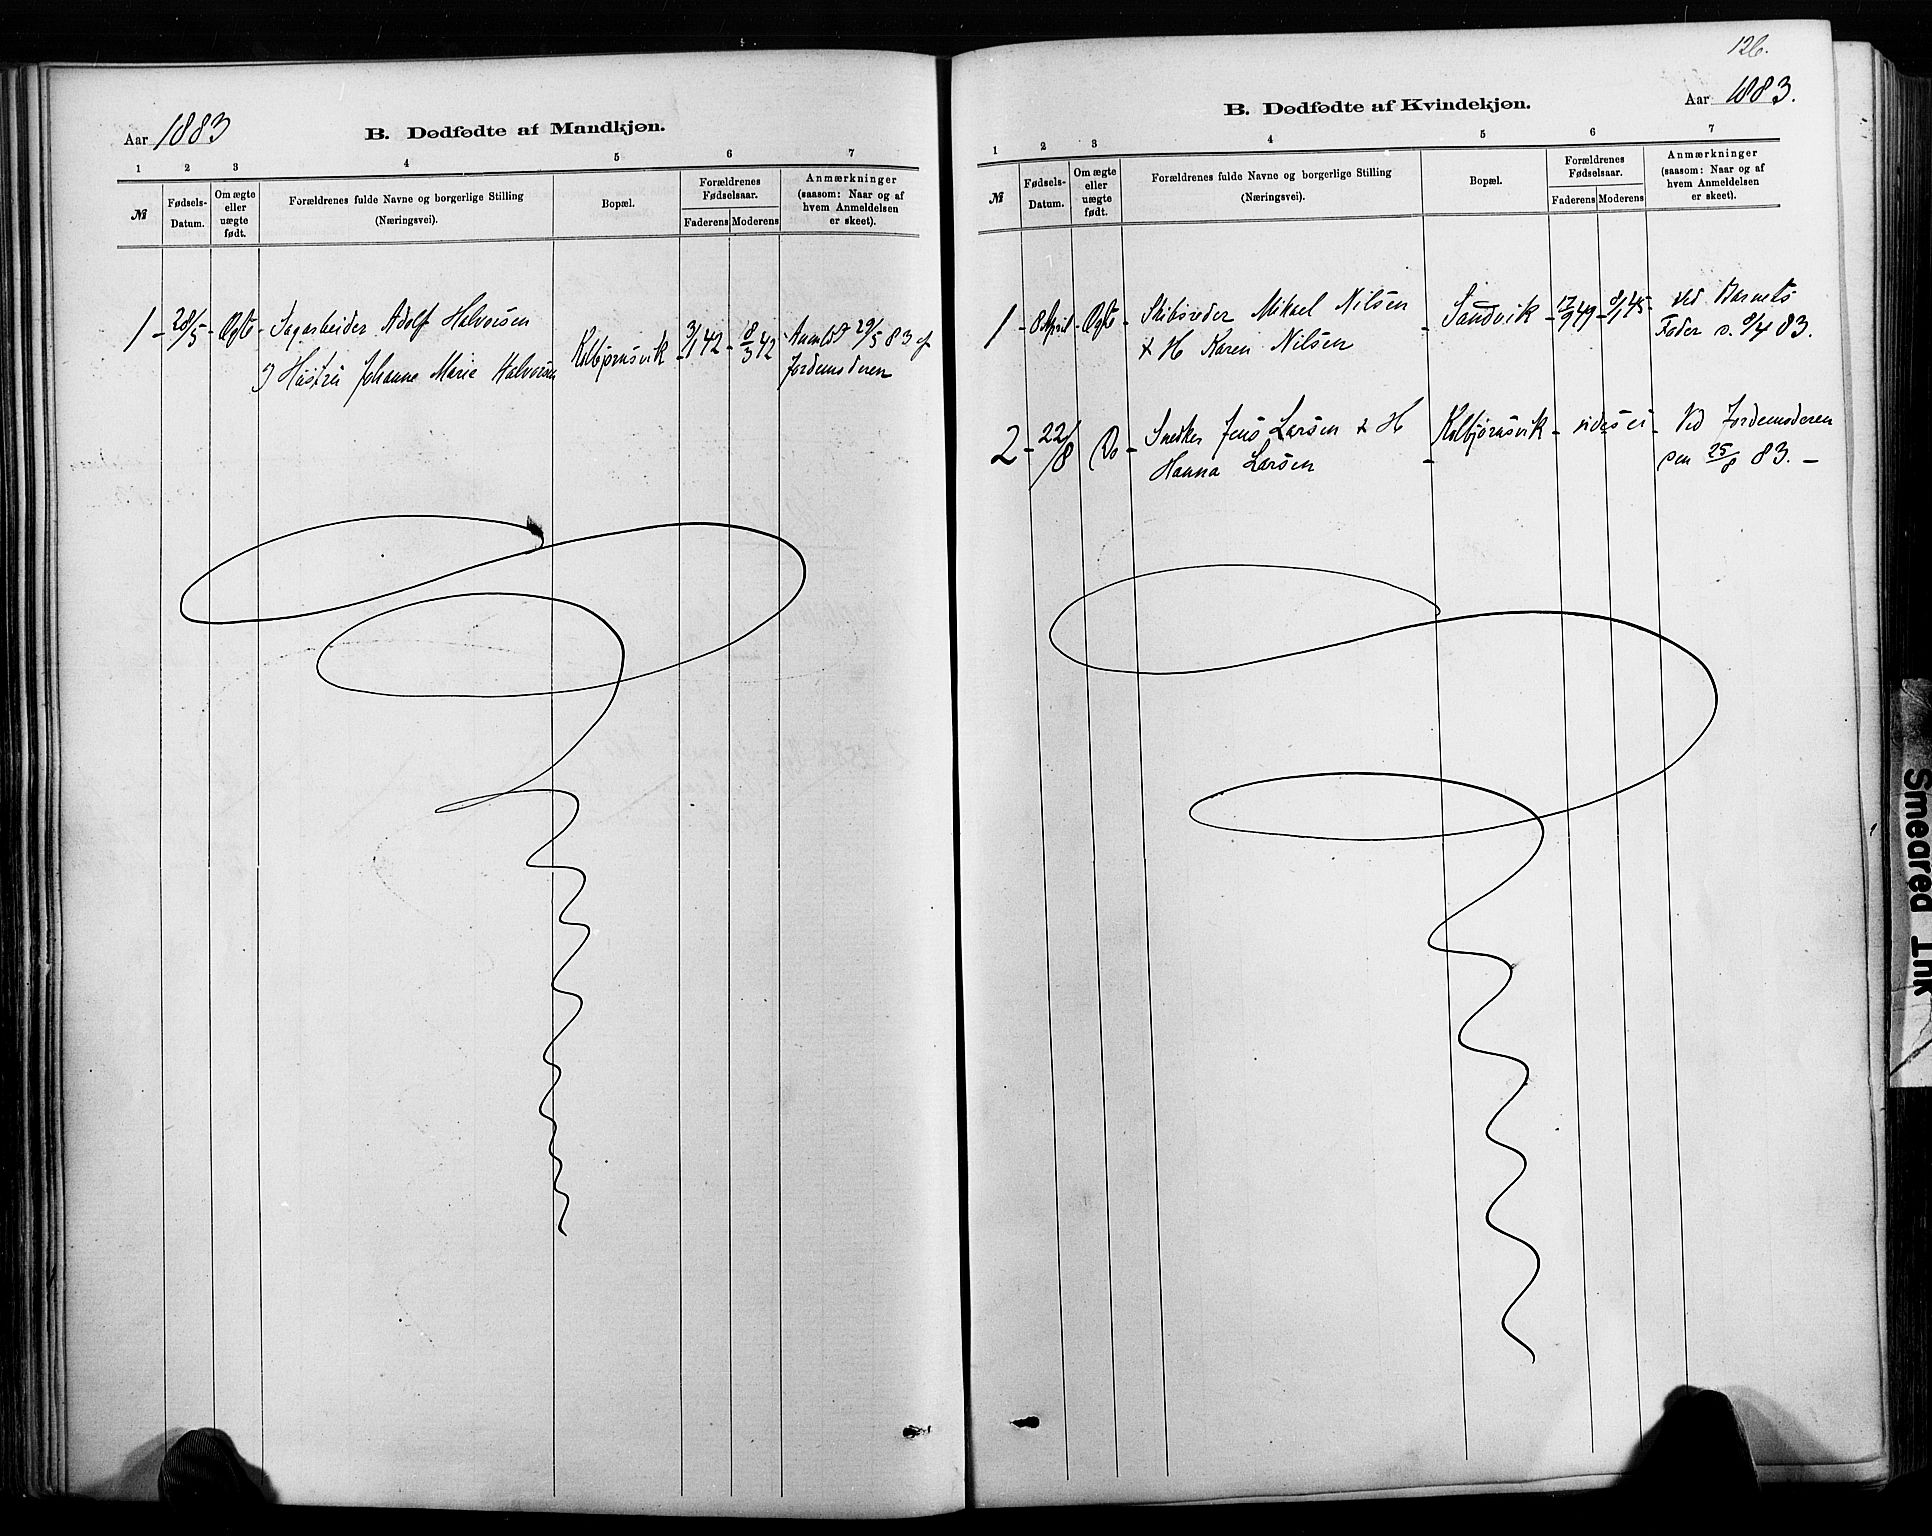 Aar 1883
B. Dødfødte af Mandkjøn.
1 2 3 4 5 6 7
№
Fødsels-
Datum.
Om ægte
eller
uægte
født.
Forældrenes fulde Navne og borgerlige Stilling
(Næringsvei).
Bopæl.
Forældrenes
Fødselsaar.
Faderens Moderens
Anmærkninger
(saasom: Naar og af
hvem Anmeldelsen
er skeet).
1 - 28/5 - Ægte - Sagarbeider Adolf Halvorsen
Hustru Johanne Marie Halvorsen
Kolbjørnsvik - 3/1 42 - 8/3 42
Anmeldt 29/5 83 af
Jordemoderen
126.
B. Dødfødte af Kvindekjøn.
Aar 1883.
1 2 3 4 5 6 7
№
Fødsels-
Datum.
Om ægte
eller
uægte
født.
Forældrenes fulde Navne og borgerlige Stilling
(Næringsvei).
Bopæl.
Forældrenes
Fødselsaar.
Faderens Moderens
Anmærkninger
(saasom: Naar og af
hvem Anmeldelsen
er skeet).
1 - 8 April - Ægte - Skibsreder Mikael Nilsen
& H Karen Nilsen
- Sandvik - 17/9 49 - 9/1 45 -
ved Barnets
Fader d. 9/4 83.
2 - 22/8 - Do - Snedker Jens Larsen & H
Hanna Larsen
- Kolbjørnsvik -
Ved Jordemoderen
den 25/8 83. -
Smeared Ink